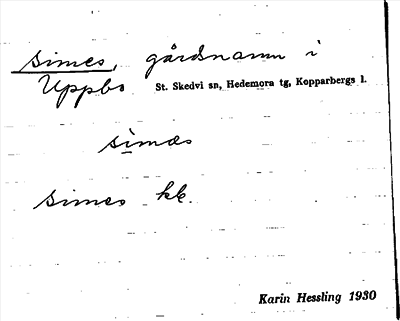 simes, gårdnamn i
Uppbo St. Skedvi sn, Hedemora tg, Kopparbergs l.
simæs
simes kk.
Karin Hessling 1930